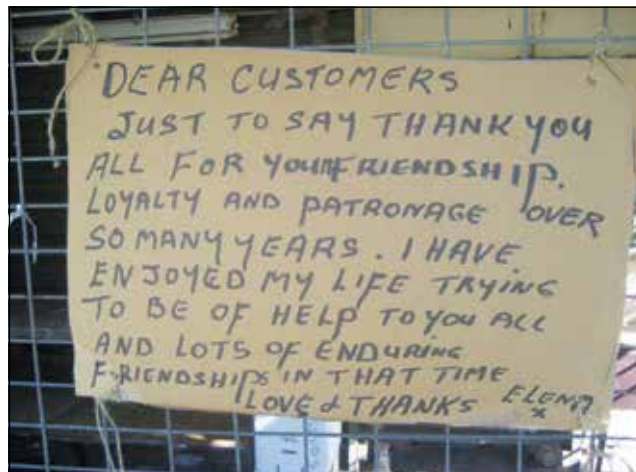 DEAR CUSTOMERS
JUST TO SAY THANK YOU
ALL FOR YOUR FRIENDSHIP.
LOYALTY AND PATRONAGE OVER
SO MANY YEARS. I HAVE
ENJOYED MY LIFE TRYING
TO BE OF HELP TO YOU ALL
AND LOTS OF ENDURING
FRIENDSHIPS IN THAT TIME
LOVE & THANKS ELENA
x